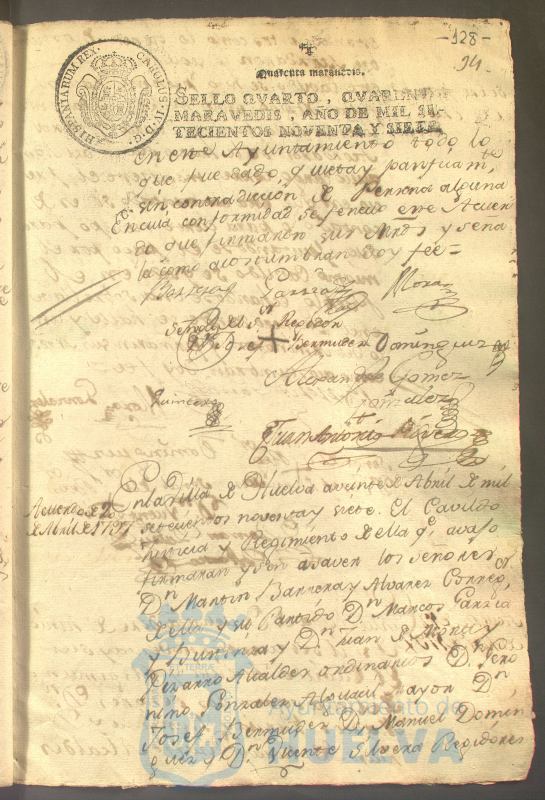 -128-
94.
HISPANIARUM REX. CAROLUS IV. D. G.
Quarenta maravedis.
SELLO QVARTO, QVARENTA
MARAVEDIS, AÑO DE MIL SE-
TECIENTOS NOVENTA Y SIETE.
en este Ayuntamiento todo lo
que fue dado, quieta y pasificam.te
sin contradiccion de Persona alguna
En cuia conformidad se fenecio este Acuer
do que firmaron sus Mrds y seña
la como acostumbran doy fee=
Barrera Garzia Mora
Señal del Sr Regidor
Dn Josef + Bermudez Dominguez
Alexandro Gomez
Gonzalez
Quintero
Juan Antonio
Acuerdo de 20
de Abril de 1797
En la Villa de Huelva a veinte de Abril de mil
setecientos noventa y siete. El Cavildo
Justicia y Regimiento de ella q.e avajo
firmaran y son a saver los señores
Dn Martin Barrera y Alvarez Correg.or
de ella y su Partido Dn Marcos Garzia
y Dn Juan de Mora
Pizarro Alcaldes ordinarios Dn
nimo Gonzalez Alguacil mayor Dn
Josef Bermudez Dn Manuel Domin
guez y Dn Vicente Silvera Regidores
Ayuntamiento de
HUELVA